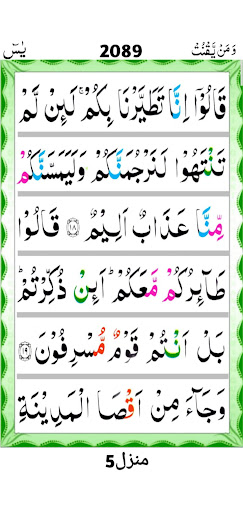 يٰسٓ 2089 وَمَنْ يَّقْنُتْ
قَالُوْٓا اِنَّا تَطَيَّرْنَا بِكُمْ ۚ لَئِنْ لَّمْ
تَنْتَهُوْا لَنَرْجُمَنَّكُمْ وَلَيَمَسَّنَّكُمْ
مِّنَّا عَذَابٌ اَلِيْمٌ ۝۱۸ قَالُوْا
طَآئِرُكُمْ مَّعَكُمْ ؕ اَئِنْ ذُكِّرْتُمْ ؕ
بَلْ اَنْتُمْ قَوْمٌ مُّسْرِفُوْنَ ۝۱۹
وَجَآءَ مِنْ اَقْصَا الْمَدِيْنَةِ
منزل5